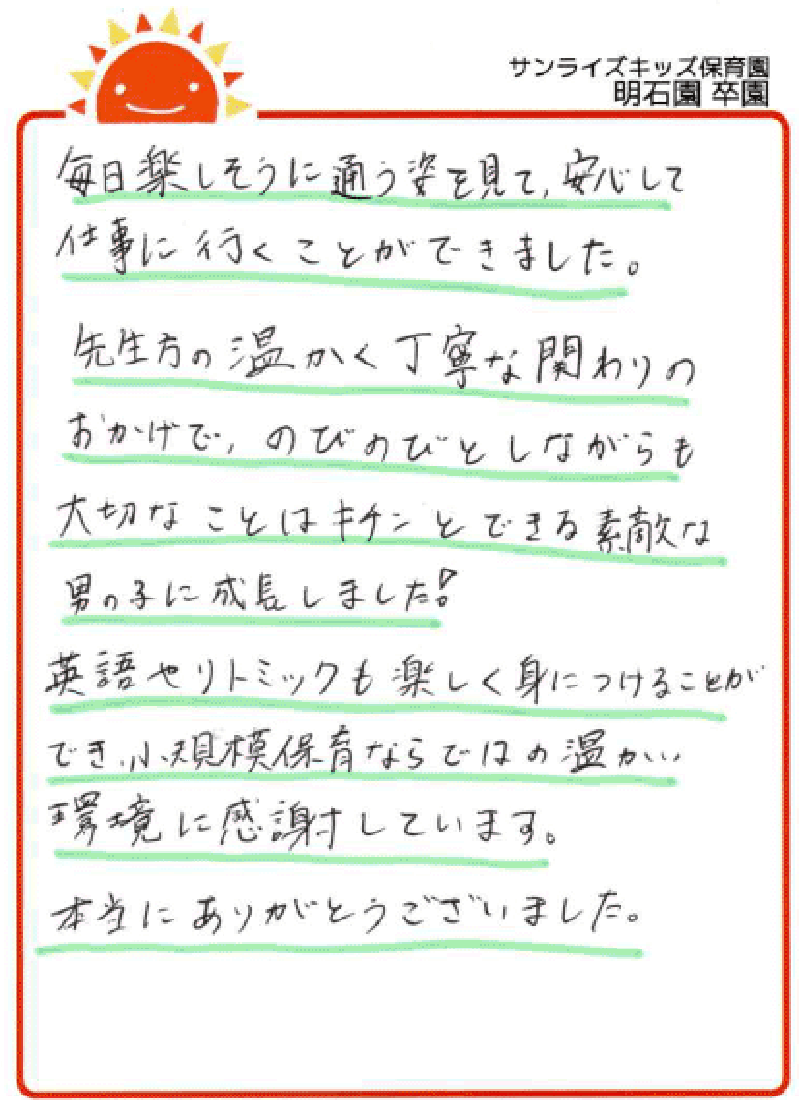 サンライズキッズ保育園
明石園 卒園
毎日楽しそうに通う姿を見て、安心して
仕事に行くことができました。
先生方の温かく丁寧な関わりの
おかげで、のびのびとしながらも
大切なことはキチンとできる素敵な
男の子に成長しました!
英語やリトミックも楽しく身につけることが
でき、小規模保育ならではの温かい
環境に感謝しています。
本当にありがとうございました。